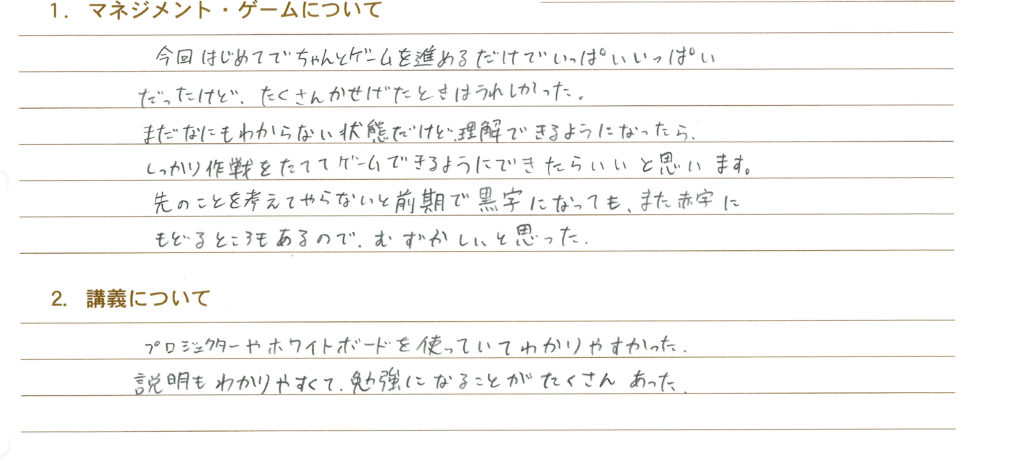 1. マネジメント・ゲームについて
今回はじめてでちゃんとゲームを進めるだけでいっぱいいっぱい
だったけど、たくさんかせげたときはうれしかった。
まだなにもわからない状態だけど、理解できるようになったら、
しっかり作戦をたててゲームできるようにできたらいいと思います。
先のことを考えてやらないと前期で黒字になっても、また赤字に
もどるところもあるので、むずかしいと思った。
2. 講義について
プロジェクターやホワイトボードを使っていてわかりやすかった。
説明もわかりやすくて、勉強になることがたくさんあった。